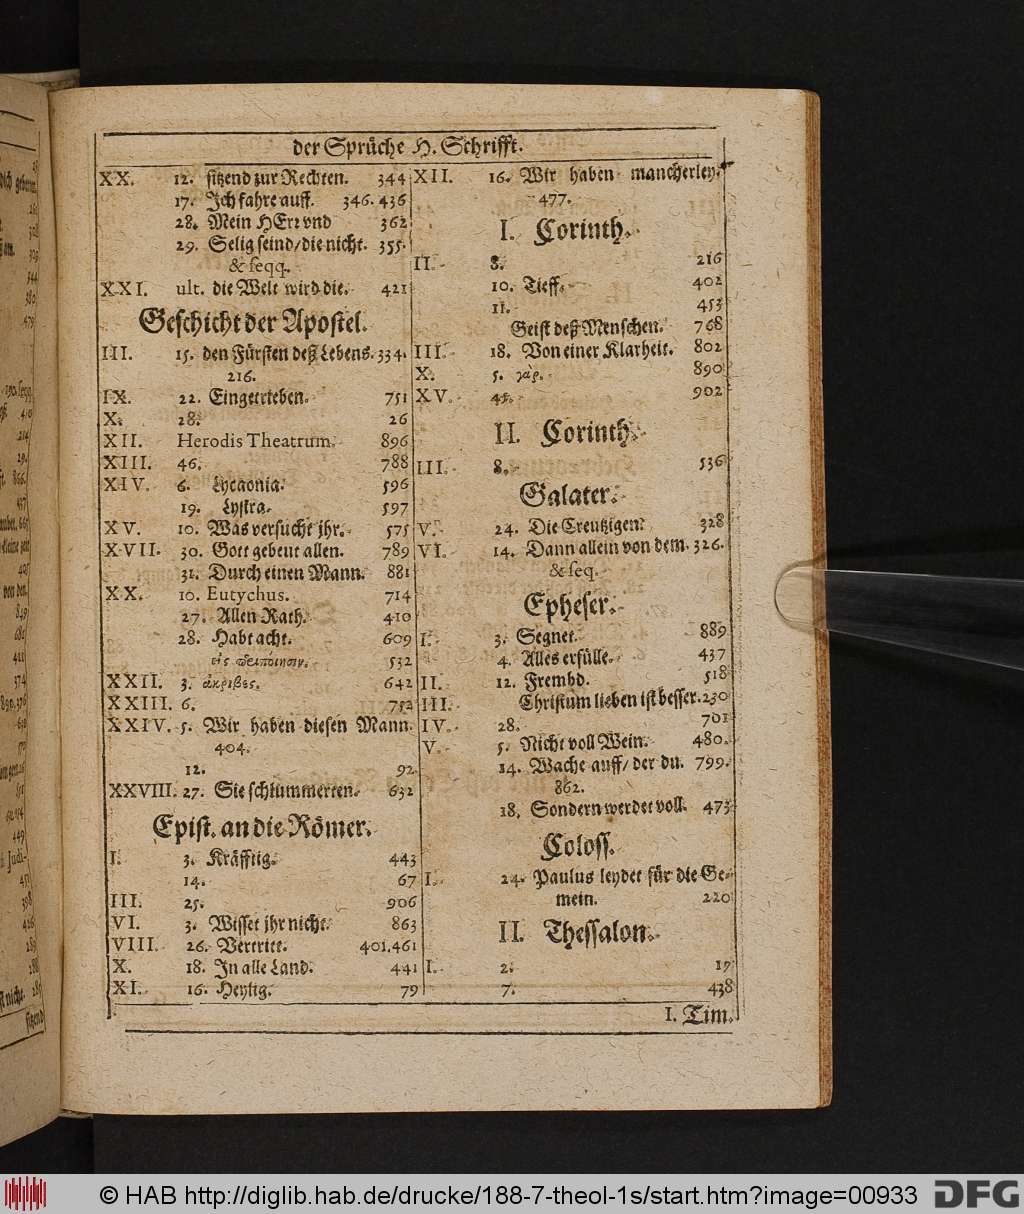 der Sprüche H. Schrifft.
XX. 12. sitzend zur Rechten. 344
17. Ich fahre auff. 346. 436
28. Mein HErr vnd 362
29. Selig seind/die nicht. 355.
& seqq.
XXI. ult. die Welt wird die. 421
Geschicht der Apostel.
III. 15. den Fürsten deß Lebens. 334.
216.
IX. 22. Eingetrieben. 751
X. 28. 26
XII. Herodis Theatrum. 896
XIII. 46. 788
XIV. 6. Lycaonia. 596
19. Lystra. 597
XV. 10. Was versucht jhr. 575
XVII. 30. Gott gebeut allen. 789
31. Durch einen Mann. 881
XX. 10. Eutychus. 714
27. Allen Rath. 410
28. Habt acht. 609
532
XXII. 3. ἀκριβες. 642
XXIII. 6. 752
XXIV. 5. Wir haben diesen Mann.
404.
12. 92.
XXVIII. 27. Sie schlummerten. 632
Epist. an die Römer.
I. 3. Kräfftig. 443
14. 67
III. 25. 906
VI. 3. Wisset jhr nicht. 863
VIII. 26. Vertritt. 401.461
X. 18. In alle Land. 441
XI. 16. Heylig. 79
XII. 16. Wir haben mancherley.
477.
I. Corinth.
II. 8. 216
10. Tieff. 402
11. 453
Geist deß Menschen. 768
III. 18. Von einer Klarheit. 802
X. 5. γάρ. 890
XV. 45. 902
II. Corinth.
III. 8. 536
Galater.
V. 24. Die Creutzigen. 328
VI. 14. Dann allein von dem. 326.
& seq.
Epheser.
I. 3. Segnet. 889
4. Alles erfülle. 437
II. 12. Frembd. 518
III. Christum lieben ist besser. 230
IV. 28. 701
V. 5. Nicht voll Wein. 480.
14. Wache auff/ der du. 799.
862.
18. Sondern werdet voll. 473
Coloss.
I. 24. Paulus leydet für die Ge-
mein. 220
II. Thessalon.
I. 2. 19
7. 438
I. Tim.
© HAB http://diglib.hab.de/drucke/188-7-theol-1s/start.htm?image=00933
DFG